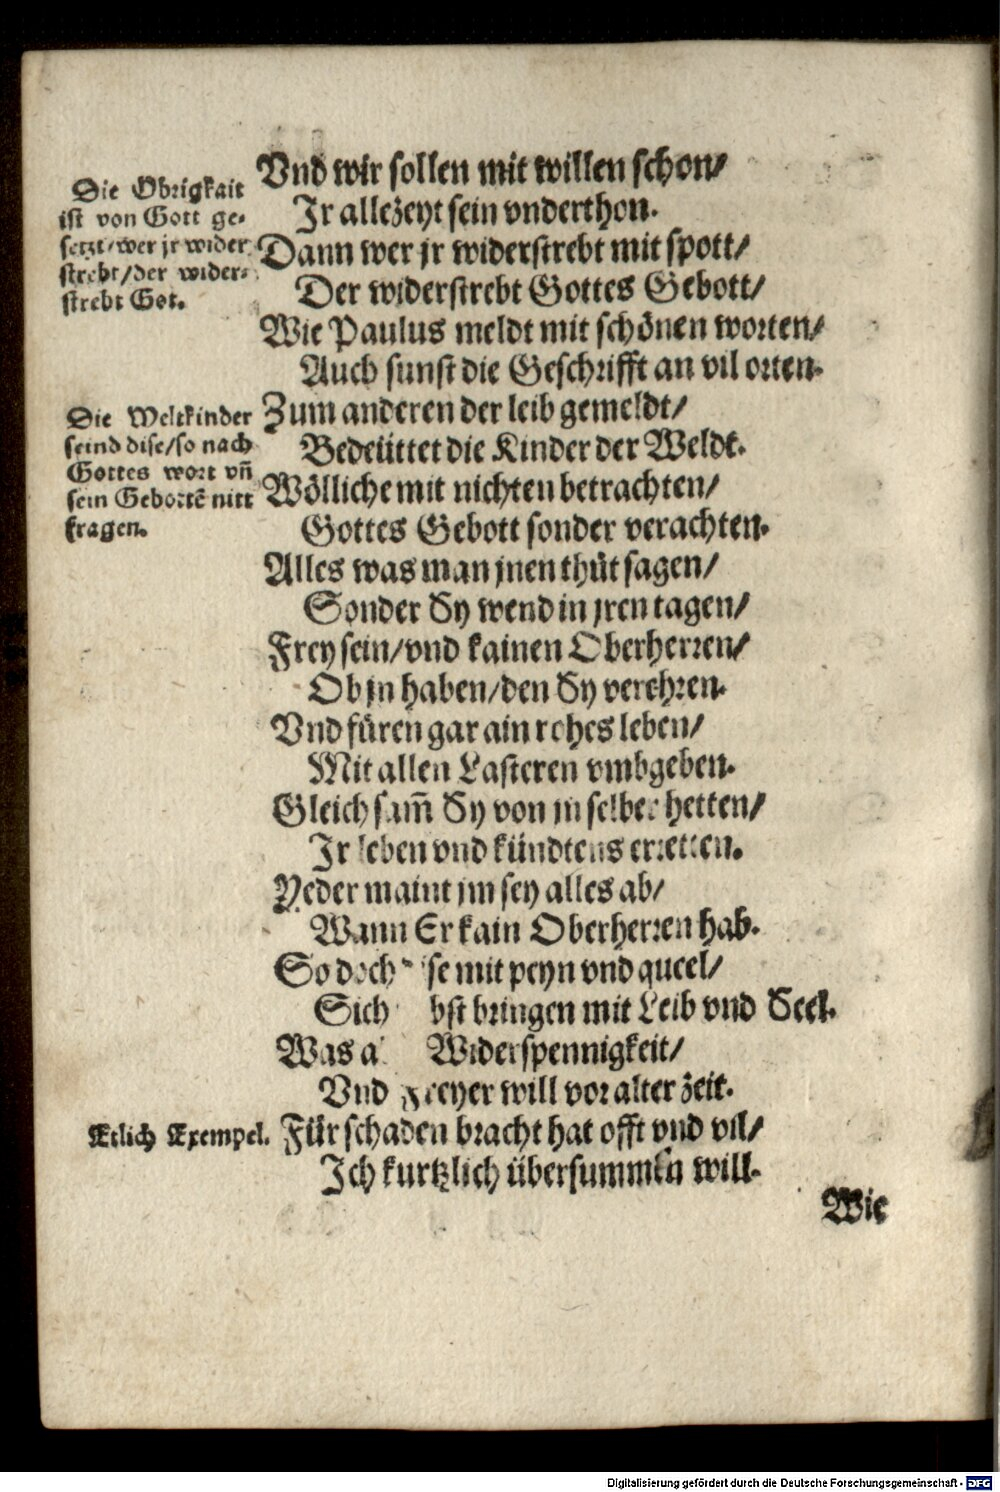 Die Obrigkait
ist von Gott ge-
setzt/wer jr wider
strebt/der wider-
strebt Got.
Vnd wir sollen mit willen schon/
Jr allezeyt sein vnderthon.
Dann wer jr widerstrebt mit spott/
Der widerstrebt Gottes Gebott/
Wie Paulus meldt mit schönen worten/
Auch sunst die Geschrifft an vil orten.
Die Weltkinder
seind dise/so nach
Gottes wort vñ
sein Gebottē nitt
fragen.
Zum anderen der leib gemeldt/
Bedeüttet die Kinder der Weldt.
Wölliche mit nichten betrachten/
Gottes Gebott sonder verachten.
Alles was man jnen thůt sagen/
Sonder Sy wend in jren tagen/
Frey sein/vnd kainen Oberherren/
Ob jn haben/den Sy verehren.
Vnd füren gar ain rohes leben/
Mit allen Lasteren vmbgeben.
Gleich sam̃ Sy von jn selber hetten/
Jr leben vnd kündtens erretten.
Yeder maint jm sey alles ab/
Wann Er kain Oberherren hab.
So doch se mit peyn vnd queel/
Sich bst bringen mit Leib vnd Seel.
Was a Widerspennigkeit/
Vnd Freyer will vor alter zeit.
Etlich Exempel.
Für schaden bracht hat offt vnd vil/
Jch kurtzlich übersummen will.
Wie
Digitalisierung gefördert durch die Deutsche Forschungsgemeinschaft - DFG